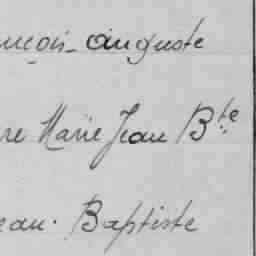 nçois- auguste
re Marie Jean Bte
ean. Baptiste